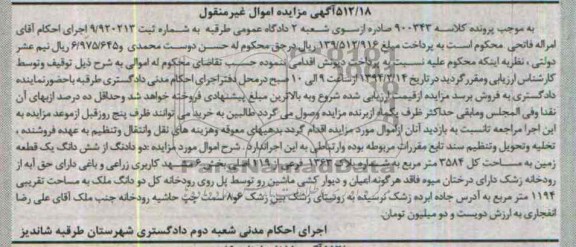 ۵۱۲/۱۸آگهی مزایده اموال غیرمنقول
به موجب پرونده کلاسه ۹۰۰۳۴۳ صادره ازسوی شعبه ۲ دادگاه عمومی طرقبه به شماره ثبت ۹/۹۲۰۲۱۳ اجرای احکام آقای
امراله فاتحی محکوم است به پرداخت مبلغ ۱۳۹/۵۱۲/۹۱۶ ریال درحق محکوم له حسن دوست محمدی و۶/۹۷۵/۶۴۵ ریال نیم عشر
دولتی، نظربه اینکه محکوم علیه نسبت به پرداخت دیونش اقدامی ننموده حسب تقاضای محکوم له اموالی به شرح ذیل توقیف وتوسط
کارشناس ارزیابی ومقررگردید درتاریخ ۱۳۹۲/۲/۱۴ ازساعت ۹ الی ۱۰ صبح درمحل دفتراجرای احکام مدنی دادگستری طرقبه باحضورنماینده
دادگستری به فروش برسد مزایده ازقیمت ارزیابی شده شروع وبه بالاترین مبلغ پیشنهادی فروخته خواهد شد وحداقل ده درصد ازبهای آن
نقدا وفی المجلس ومابقی حداکثر ظرف یکماه ازبرنده مزایده وصول می گردد طالبین به خرید می توانند ظرف پنج روزقبل ازموعد مزایده به
این اجرا مراجعه تانسبت به بازدید آنان ازاموال مورد مزایده اقدام گردد بدهیهای معوقه وهزینه های نقل وانتقال وتنظیم به عهده فروشنده ،
تخلیه وتحویل وتنظیم سند تابع مقررات مربوطه بوده وارتباطی به این اجراندارد . شرح اموال مورد مزایده :دو دانگ از شش دانگ یک قطعه
زمین به مساحت کل ۳۵۸۴ متر مربع به شماره پلاک ۱۳۶۳ فرعی از ۱۱۹ اصلی بخش ۶ مشهد کاربری زراعی و باغی دارای حق آبه از
رودخانه زشک دارای درختان میوه فاقد هرگونه اعیان و دیوار کشی ماشین رو توسط پل روی رودخانه کل دو دانگ ملک به مساحت تقریبی
۱۱۹۴ متر مربع به آدرس جاده ابرده زشک نرسیده به روستای زشک بین زشک ۷و۹ سمت چپ حاشیه رودخانه جنب ملک آقای علی رضا
انفجاری به ارزش دویست و دو میلیون تومان.
اجرای احکام مدنی شعبه دوم دادگستری شهرستان طرقبه شاندیز